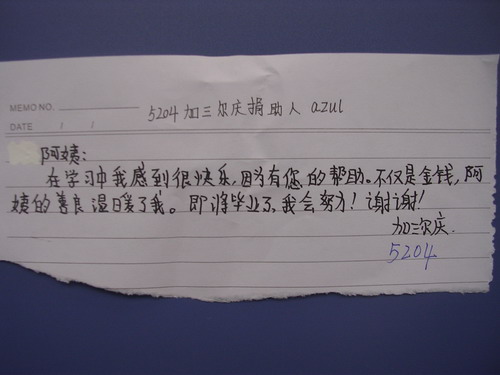 MEMO NO.
5204 加三尔庆捐助人 azul
DATE / /
阿姨:
在学习中我感到很快乐,因为有您的帮助。不仅是金钱,阿
姨的善良温暖了我。即将毕业了,我会努力!谢谢!
加三尔庆.
5204